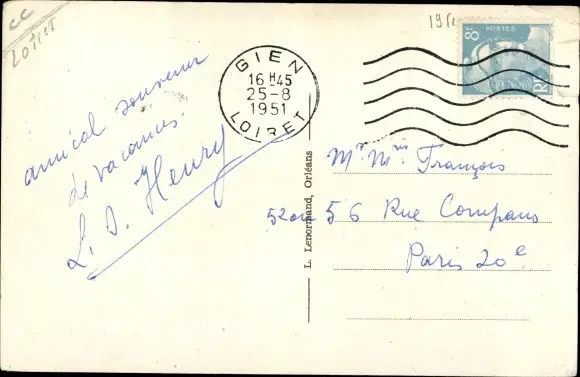 CC
Loiret
195
8F
POSTES
RF
GIEN
16 H45
25-8
1951
LOIRET
amical souvenir
de vacances.
L. D. Henry
L. Lenormand, Orléans
Mr Mme François
52ou 56 Rue Compans
Paris 20e